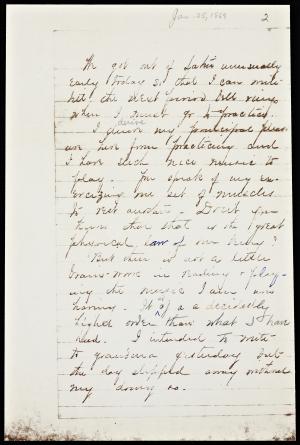 Jan. 25, 1869
2
We got out of Latin unusually
early today so that I can write
till the dress bell rings
when I must go & practice.
derive
I my principal pleas-
ure here from practicing and
I have such nice music to
play. You speak of my ex-
ercising one set of muscles
to rest another. Don't you
know that that is the great
physical law of our being?
But there is not a little
brain-work in reading & play-
ing the music I am now
having. It is of a decidedly
higher order than what I have
had. I intended to write
to grandma yesterday but
the day slipped away without
my doing so.